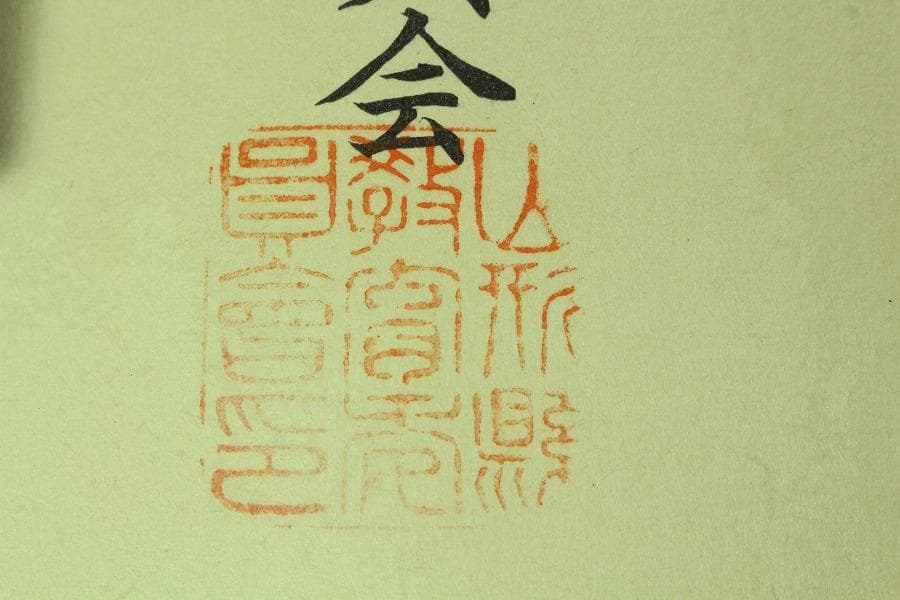 会
山形縣
教育委
員會印